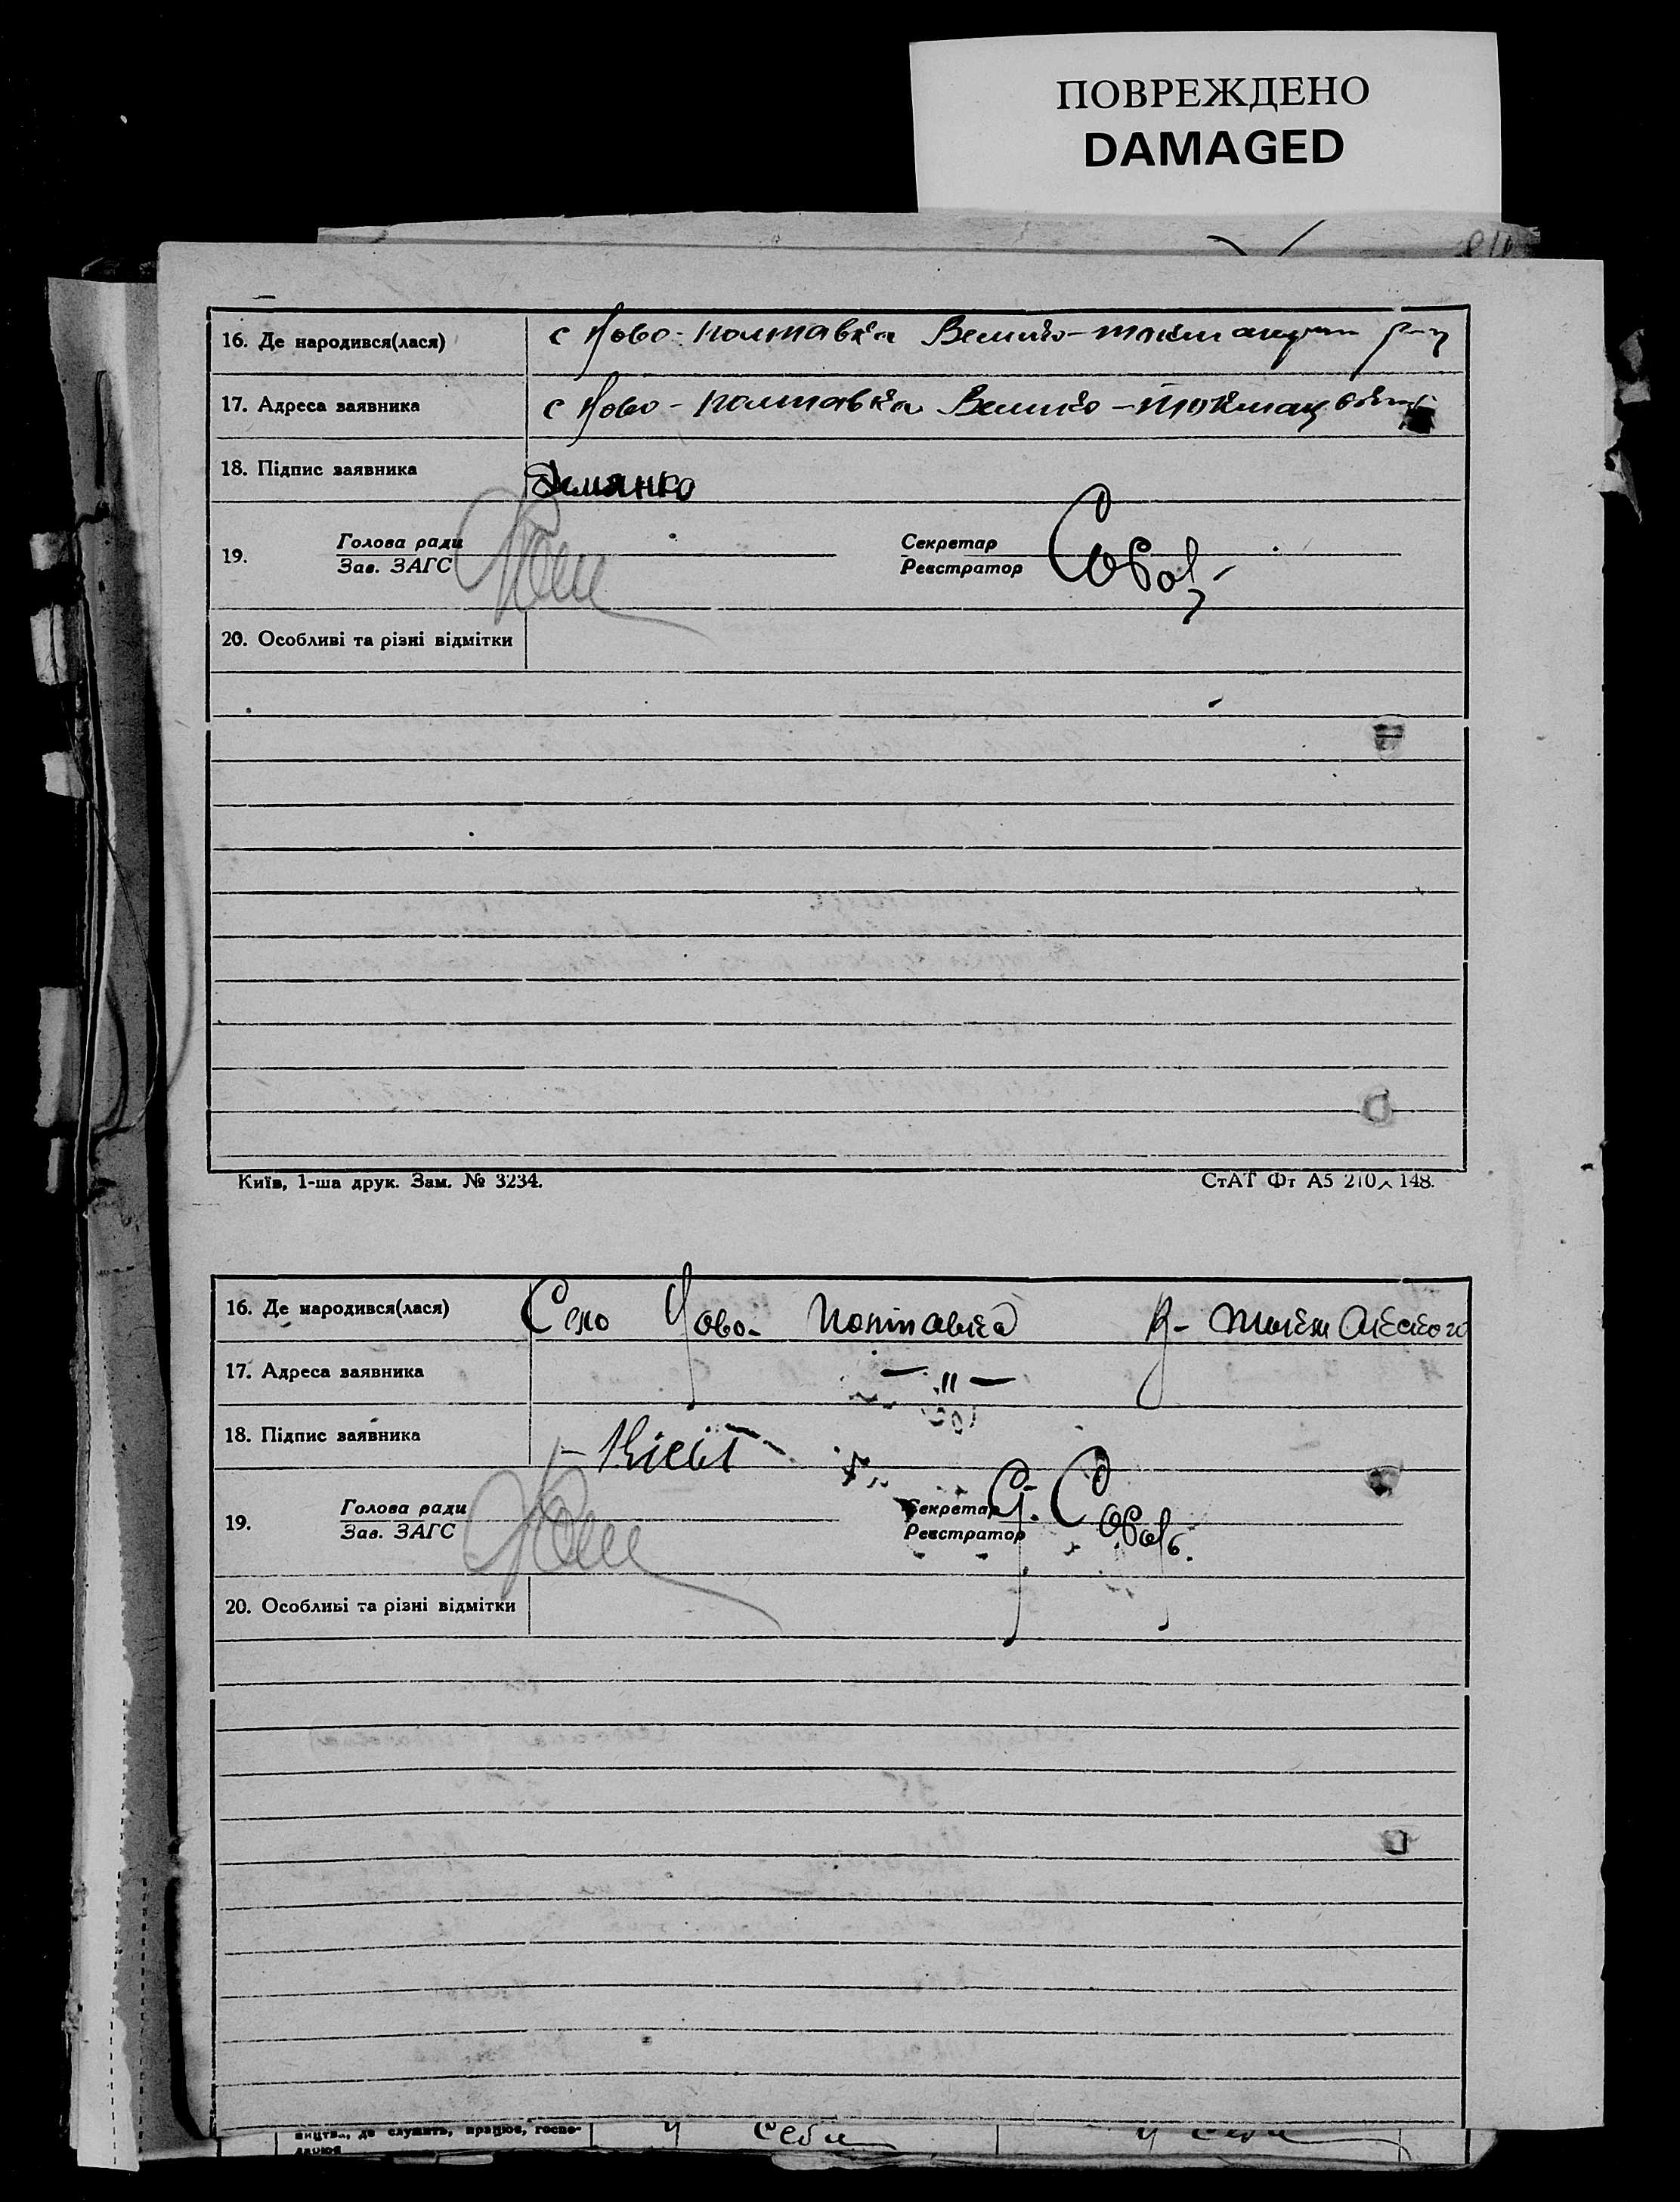 ПОВРЕЖДЕНО
DAMAGED
16. Де народився(лася) с Ново-полтавка Велико-токмацьк
17. Адреса заявника с Ново-полтавка Велико-токмац
18. Підпис заявника Демянко
19. Голова ради Секретар
Зав. ЗАГС Реєстратор
20. Особливі та різні відмітки
Київ, 1-ша друк. Зам. № 3234. СтАТ Фт А5 210 × 148.
16. Де народився(лася) Село Ново-Полтавка В-Токмакского
17. Адреса заявника — " —
18. Підпис заявника
19. Голова ради Секретар
Зав. ЗАГС Реєстратор
20. Особливі та різні відмітки
де служить, працює, госпо- у себи у себи